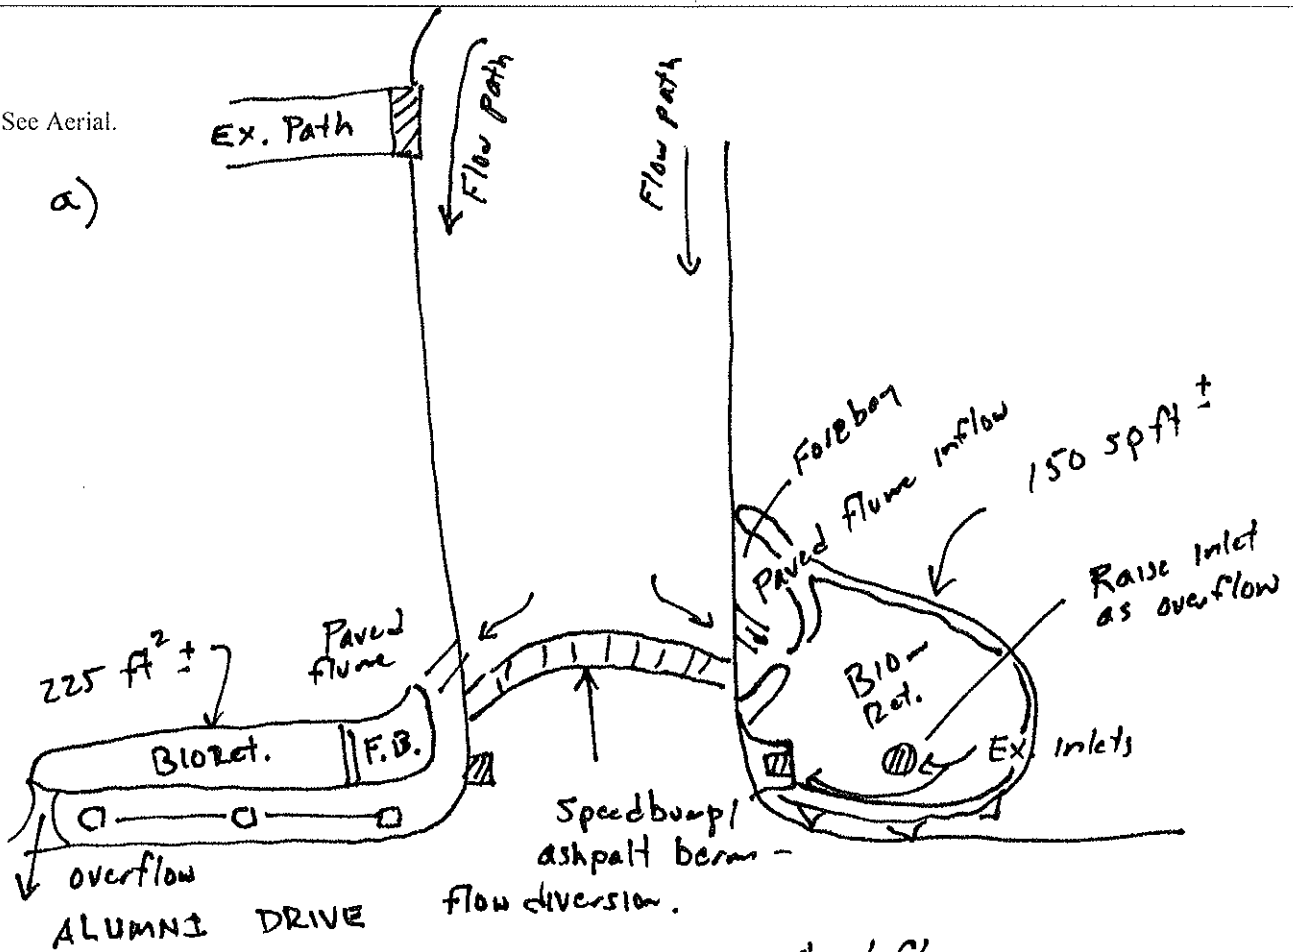 See Aerial.
a)
Ex. Path
Flow path
Flow path
Forebay
Paved flume inflow
150 sqft ±
Raise Inlet
as overflow
Paved
flume
225 ft² ±
BioRet.
F.B.
BIO-
Ret.
Ex. Inlets
Speedbump/
ashpalt berm -
flow diversion.
overflow
ALUMNI DRIVE